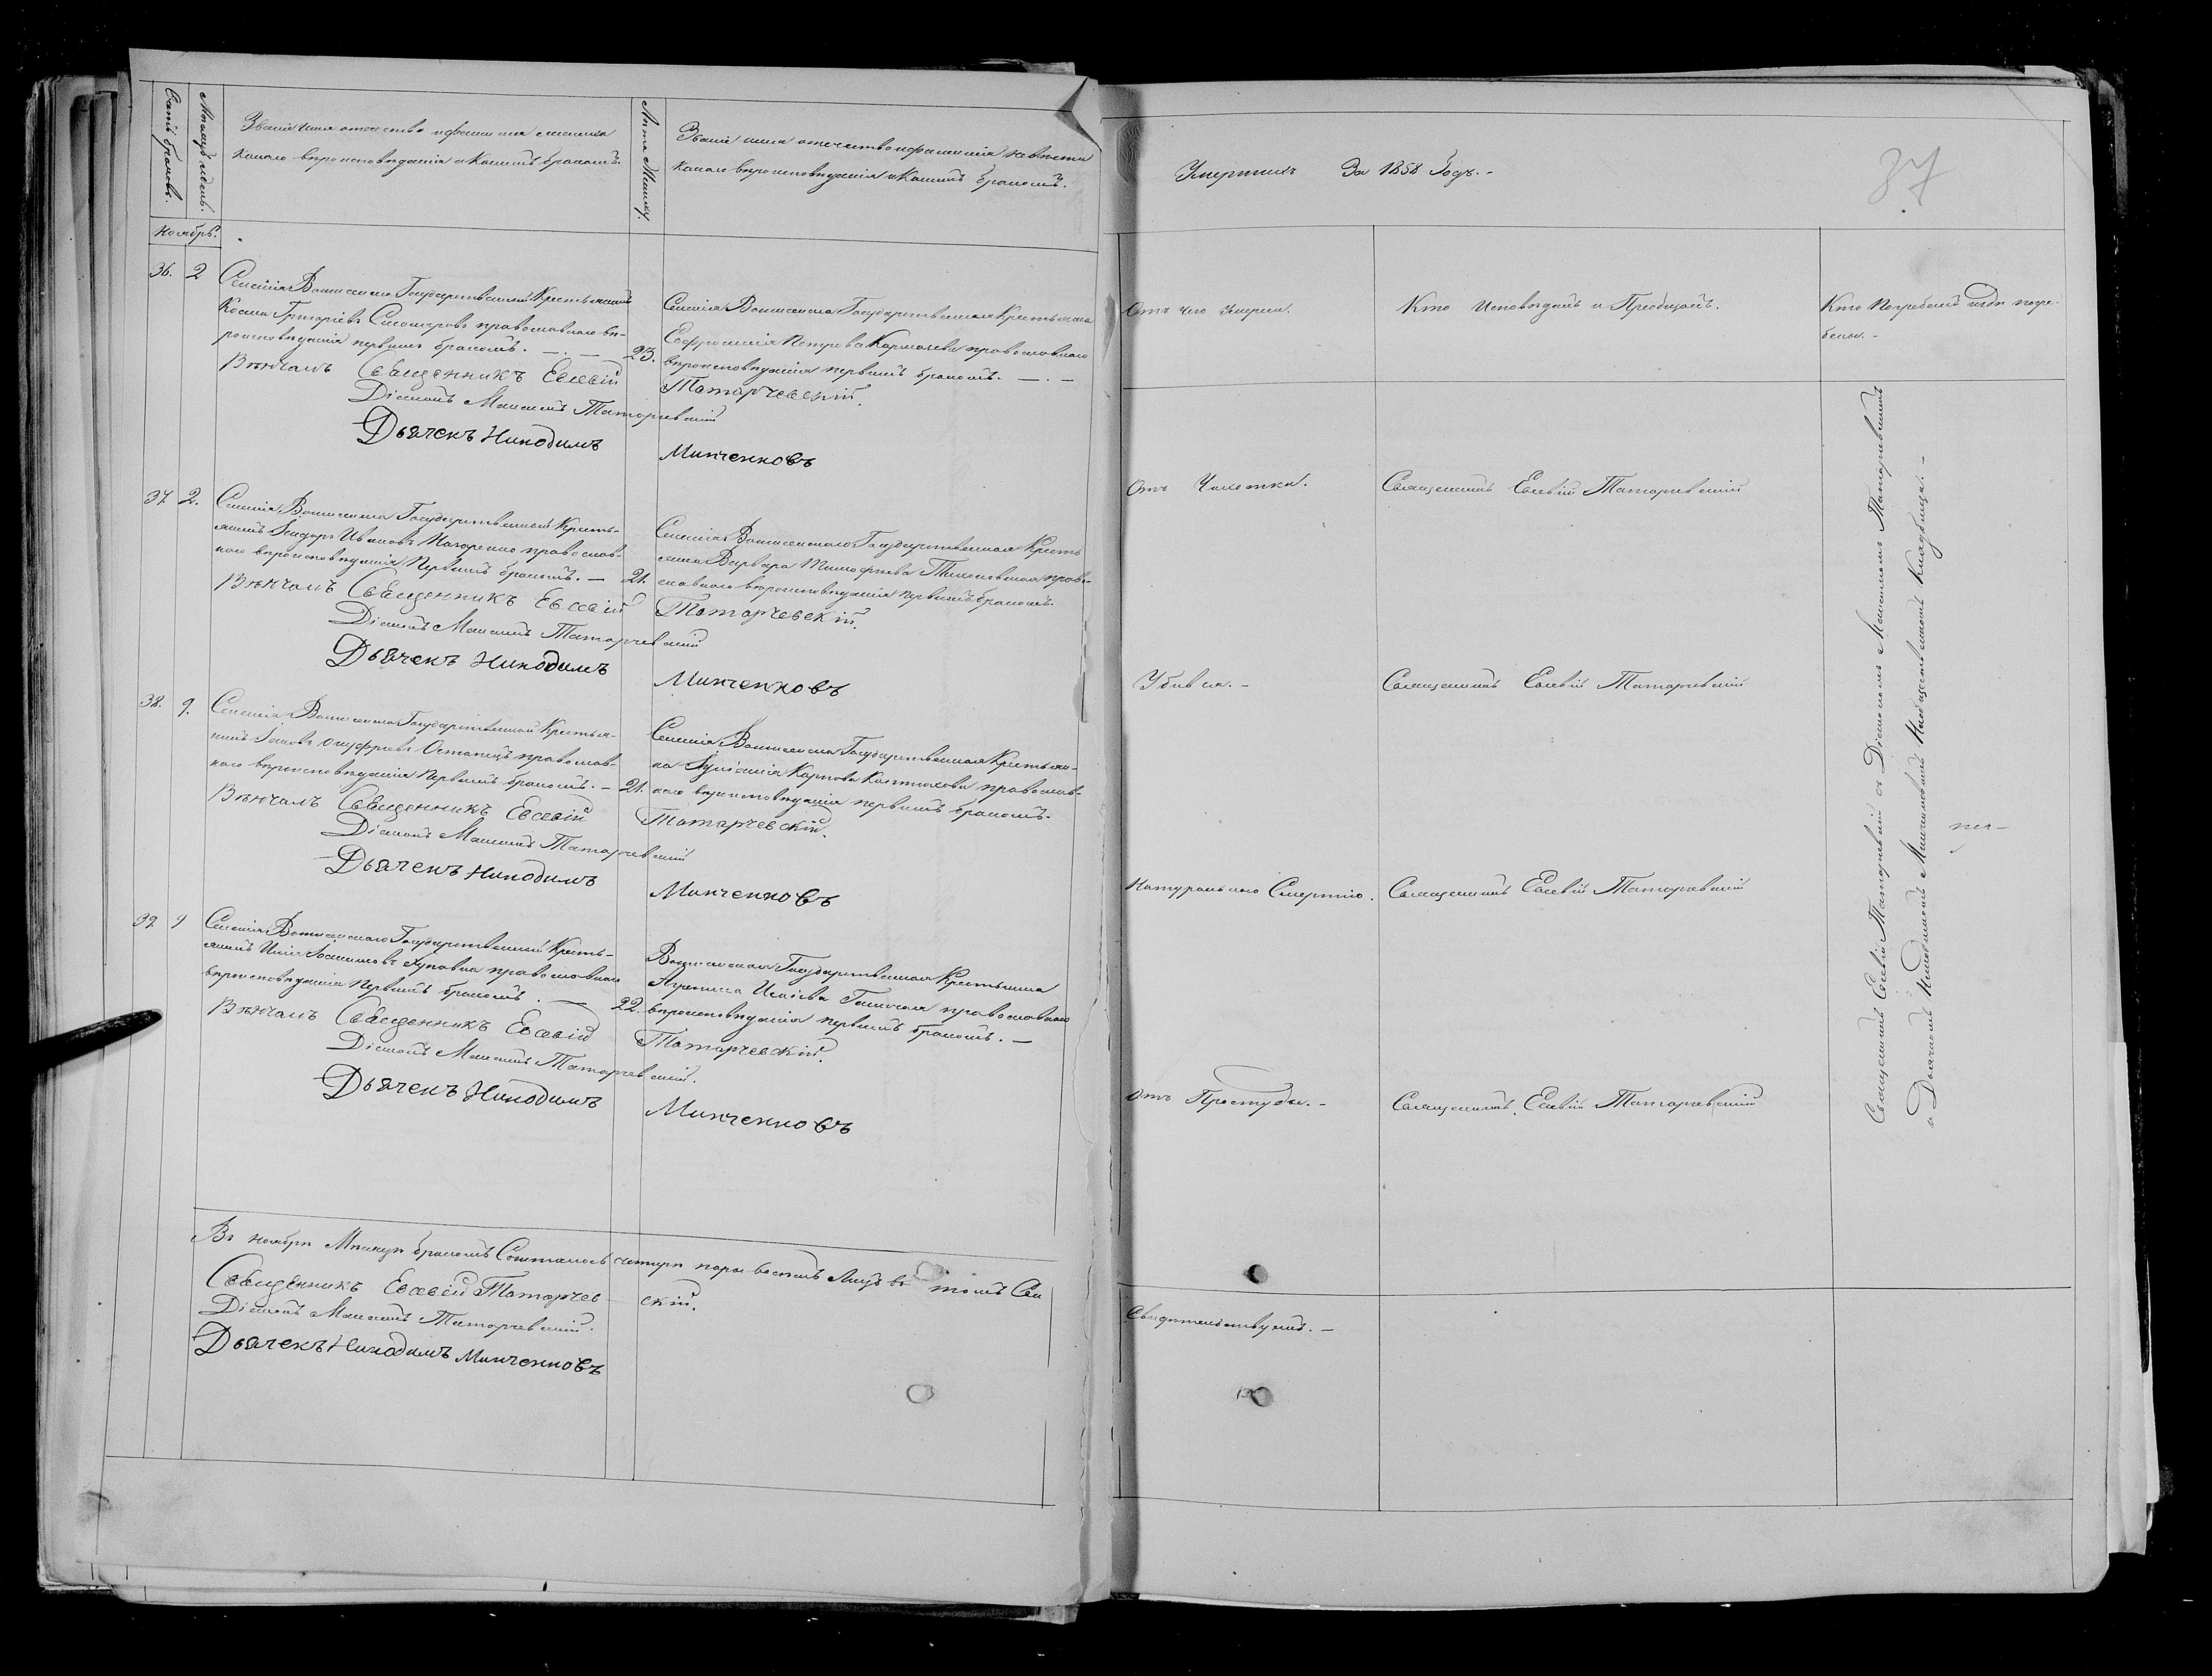 Счетъ браковъ.
Мѣсяцъ и день.
Званіе имя отечество и фамилія жениха
какого вѣроисповѣданія и коимъ бракомъ.
Лѣта жениху.
Званіе имя отечество и фамилія невѣсты
какого вѣроисповѣданія и коимъ бракомъ.
Ноябрь.
36. 2
Селенія Государственный Крестьянинъ
Косма Григоріевъ православнаго вѣ-
роисповѣданія первымъ бракомъ. — . —
23.
Селенія Государственная Крестьянка
Евфросинія Петрова православнаго
вѣроисповѣданія первымъ бракомъ. — . —
Вѣнчалъ Священникъ Евсевій Татарчевскій.
Діаконъ Максимъ Татарчевскій
Дьячекъ Никодимъ Минченковъ
37. 2.
Селенія Государственный Кресть-
янинъ Исидоръ Ивановъ Назаренко православ-
наго вѣроисповѣданія Первымъ бракомъ. —
21.
Селенія Государственная Кресть
янка Варвара Тимофѣева право-
славнаго вѣроисповѣданія первымъ бракомъ.
Вѣнчалъ Священникъ Евсевій Татарчевскій.
Діаконъ Максимъ Татарчевскій
Дьячекъ Никодимъ Минченковъ
38. 9.
Селенія Государственной Крестья-
нинъ Іаковъ Онуфріевъ Остапецъ православ-
наго вѣроисповѣданія Первымъ бракомъ. —
21.
Селенія Государственная Крестьян-
ка Іуліанія Карпова православ-
наго вѣроисповѣданія первымъ бракомъ.
Вѣнчалъ Священникъ Евсевій Татарчевскій.
Діаконъ Максимъ Татарчевскій
Дьячекъ Никодимъ Минченковъ
39. 9
Селенія Государственный Кресть-
янинъ православнаго
вѣроисповѣданія Первымъ бракомъ. —
22.
Государственная Крестьянка
православнаго
вѣроисповѣданія первымъ бракомъ. —
Вѣнчалъ Священникъ Евсевій Татарчевскій.
Діаконъ Максимъ Татарчевскій.
Дьячекъ Никодимъ Минченковъ
Въ ноябрѣ Мѣсяцѣ бракомъ Сочталось четыри пары восемь Лицъ въ томъ
Священникъ Евсевій Татарчевскій.
Діаконъ Максимъ Татарчевскій.
Дьячекъ Никодимъ Минченковъ
Умершихъ За 1858 Годъ. —
37
Отъ чего умерли.
Кто Исповѣдалъ и Пріобщалъ.
Кто Погребалъ и гдѣ погре-
бены. —
Отъ Чахотки.
Священникъ Евсевій Татарчевскій
Убився. —
Священникъ Евсевій Татарчевскій
Натуральною Смертію.
Священникъ Евсевій Татарчевскій
Отъ Простуды. —
Священникъ Евсевій Татарчевскій
Священникъ Евсевій Татарчевскій съ Діакономъ Максимомъ Татарчевскимъ
и Дьячкомъ Никодимомъ Минченковымъ на Общественномъ Кладбищѣ. —
Свидѣтельствуемъ. —